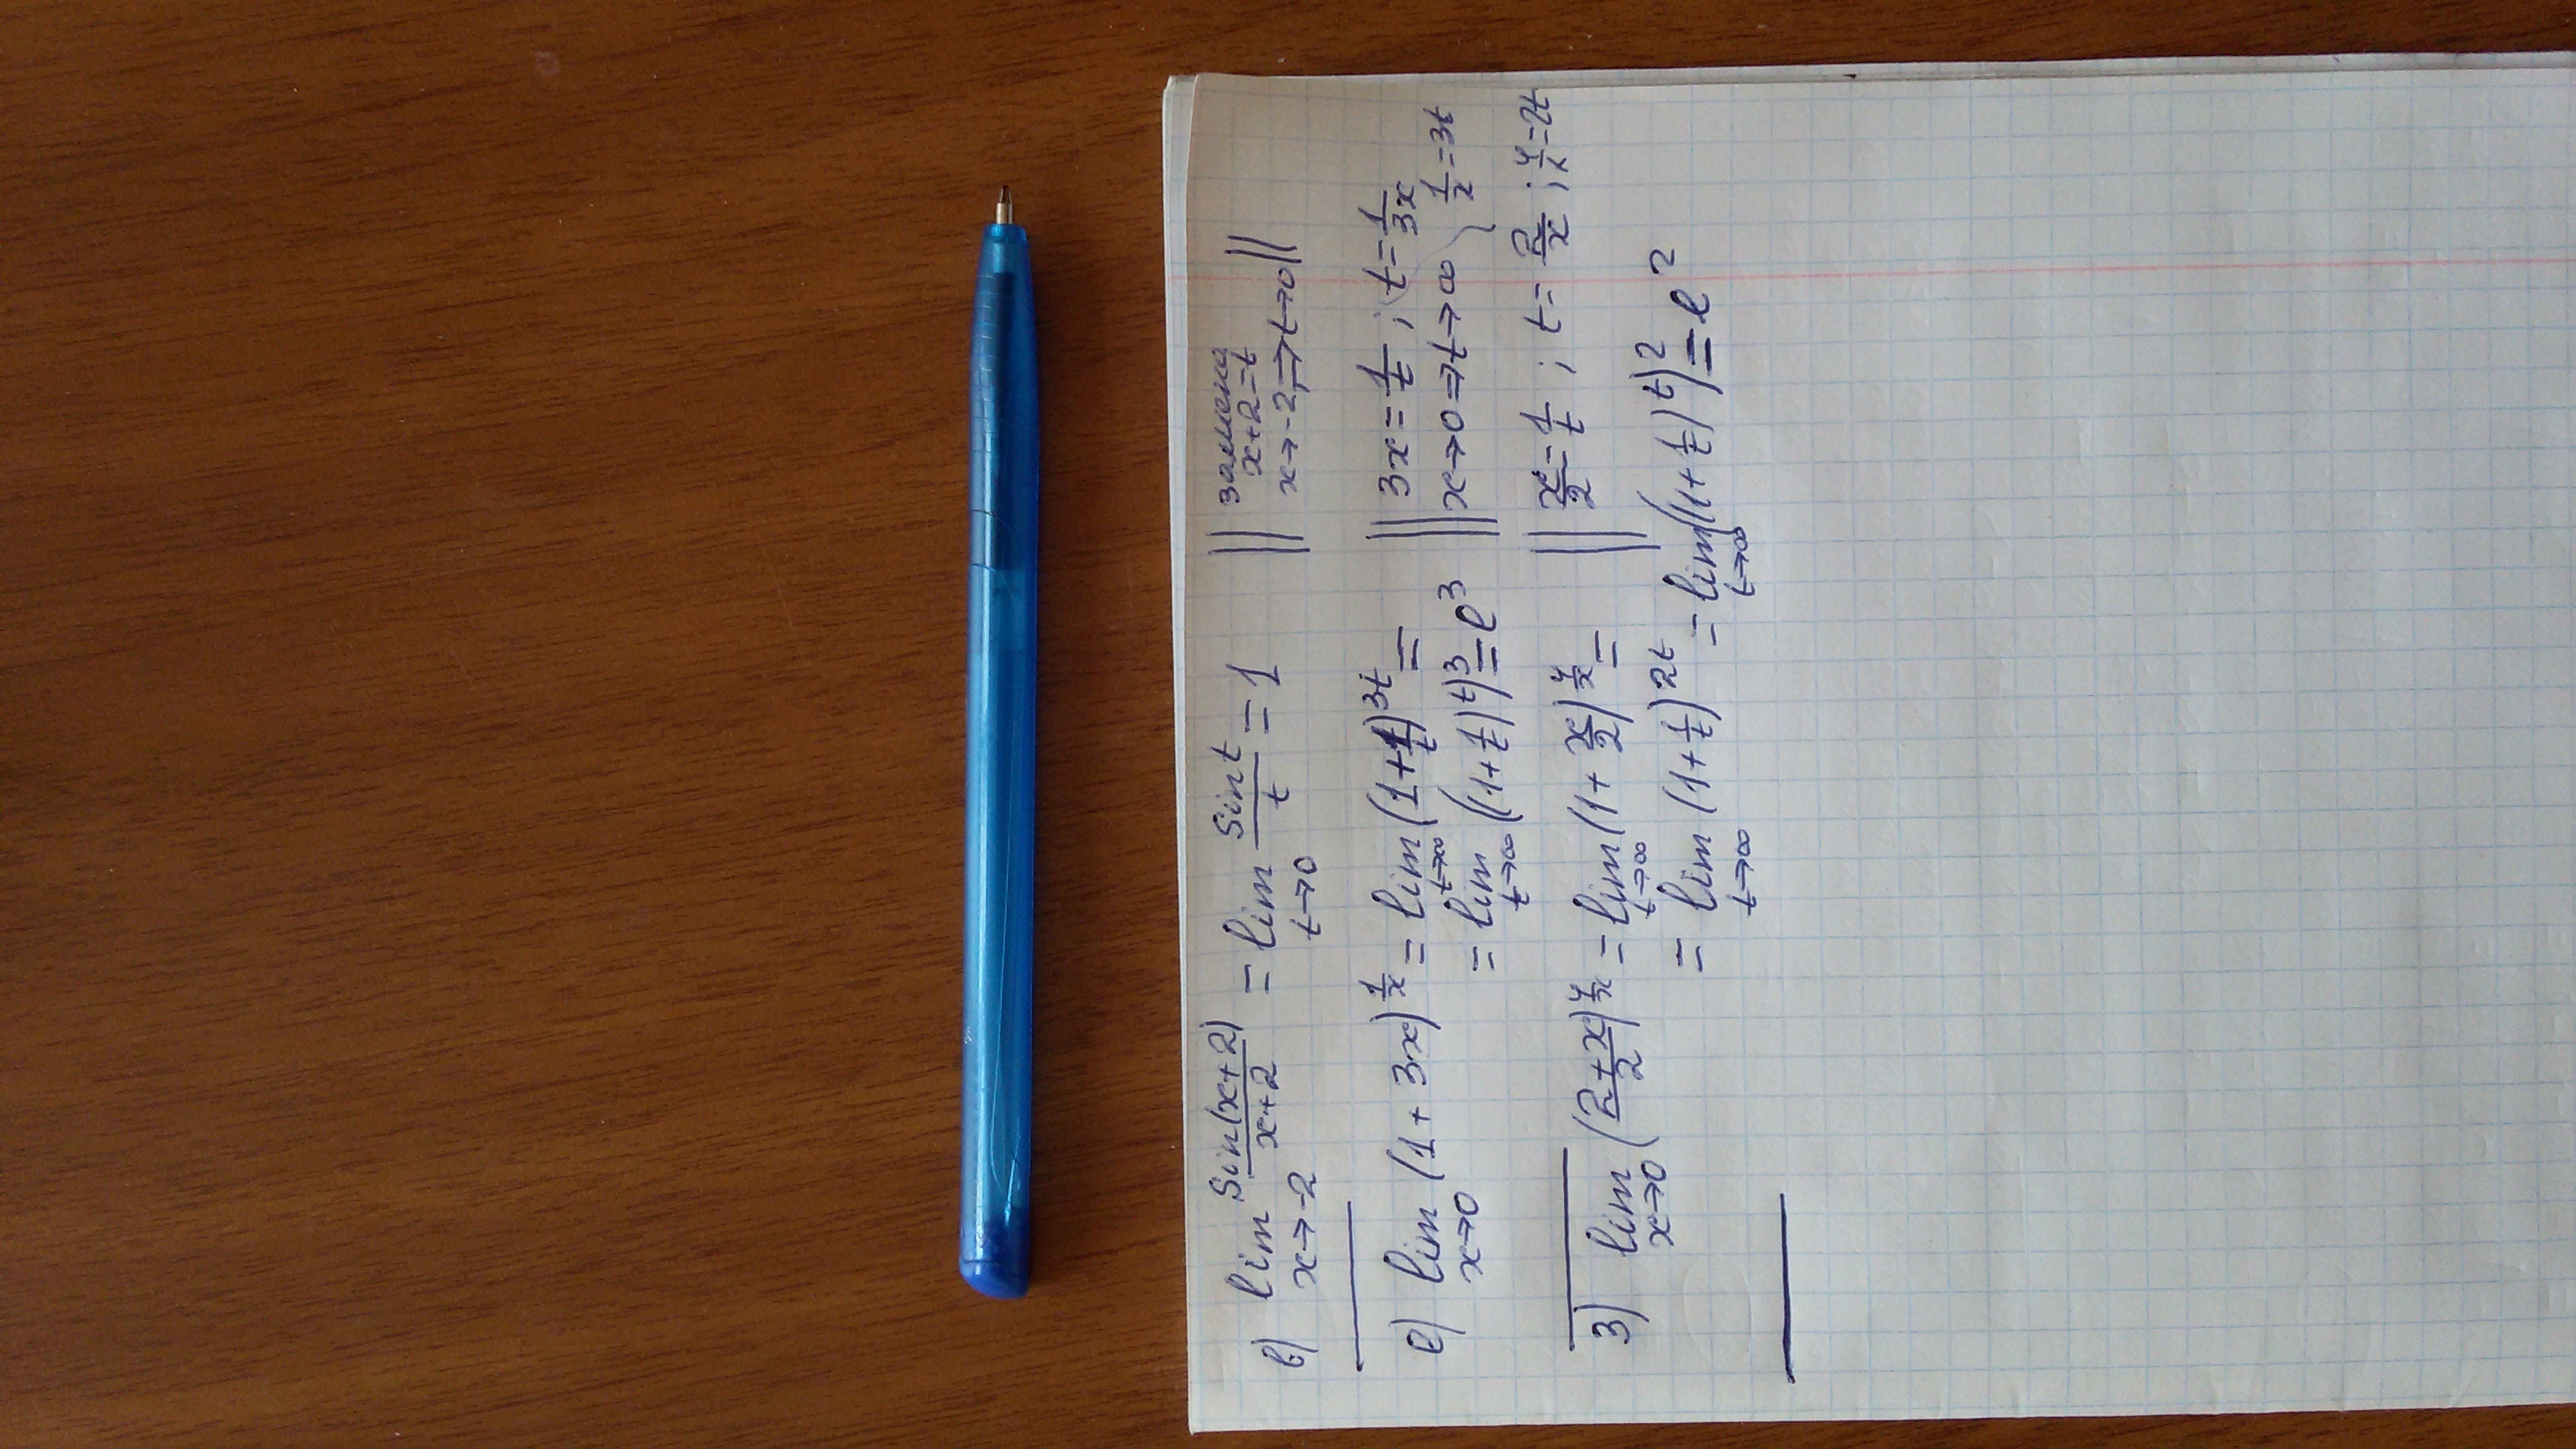 в) lim x→-2 sin(x+2)/(x+2) = lim t→0 sin t/t = 1 || замена x+2=t x→-2 ⇒ t→0 ||
е) lim x→0 (1+3x)^(1/x) = lim t→∞ (1+1/t)^(3t) = || 3x = 1/t ; t = 1/(3x)
= lim t→∞ ((1+1/t)^t)^3 = e^3 || x→0 ⇒ t→∞ } 1/x = 3t
з) lim x→0 ((2+x)/2)^(4/x) = lim t→∞ (1+x/2)^(4/x) = || x/2 = 1/t ; t = 2/x ; 4/x = 2t
= lim t→∞ (1+1/t)^(2t) = lim t→∞ ((1+1/t)^t)^2 = e^2